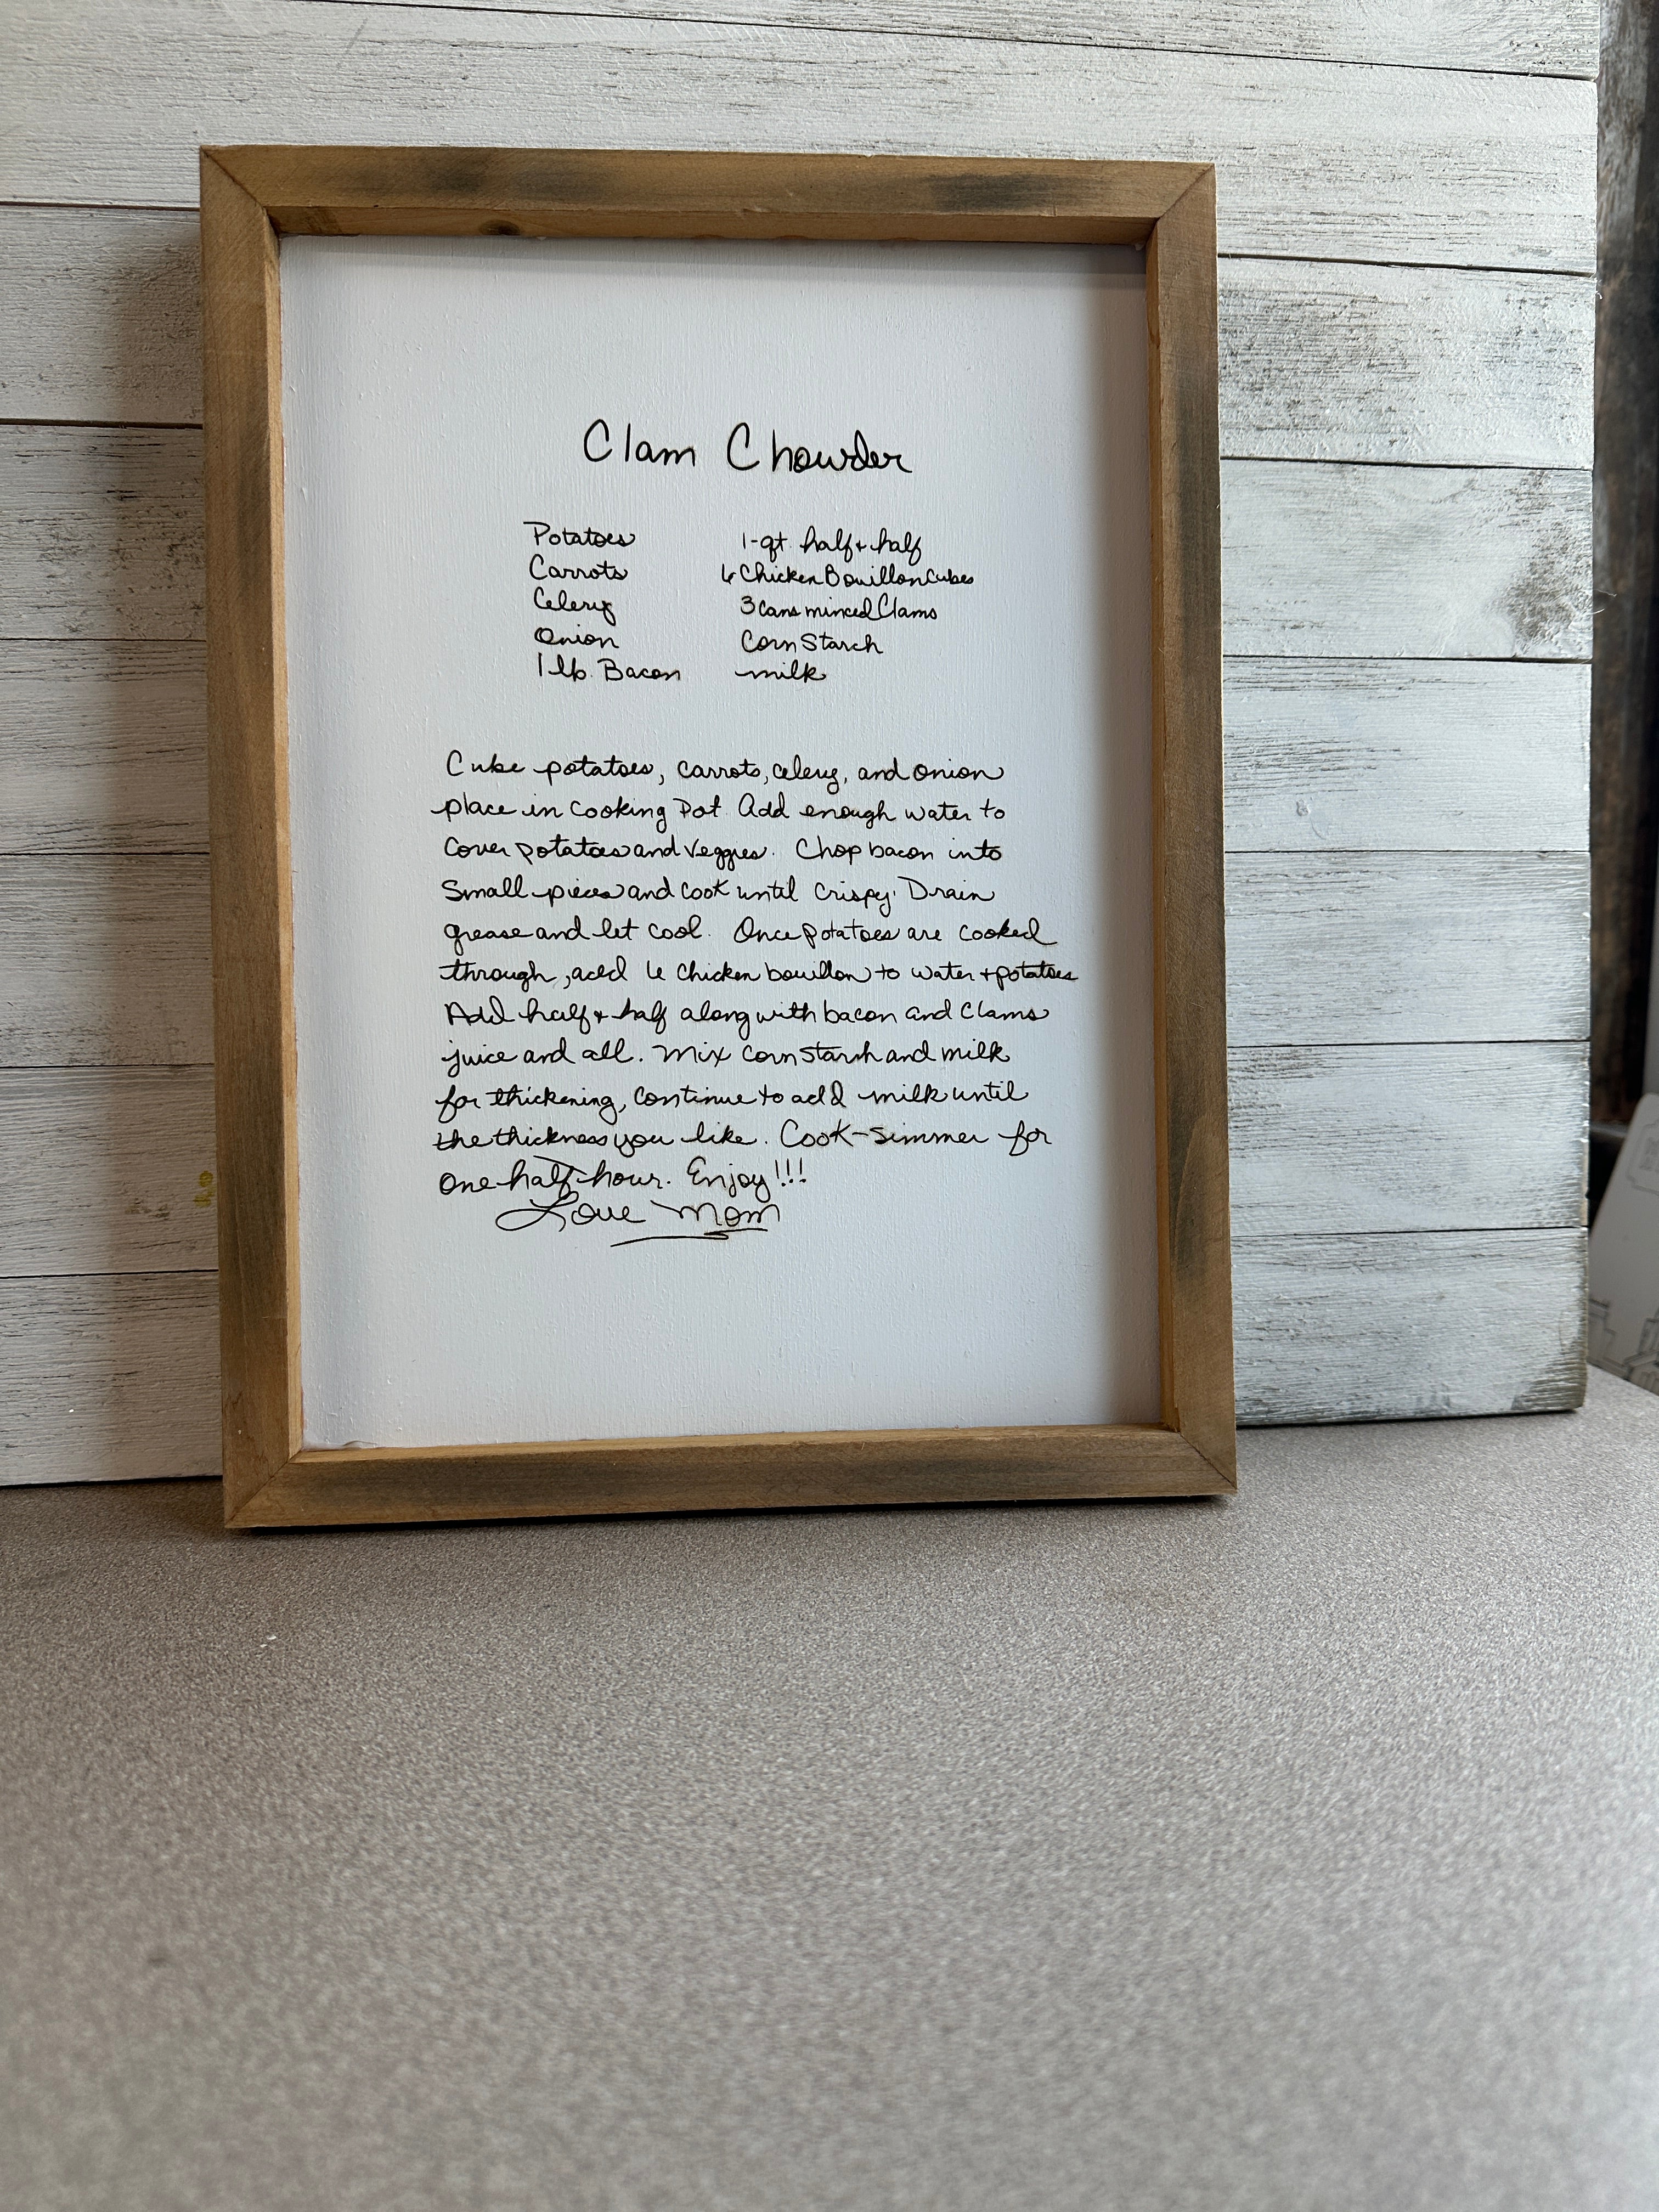 Clam Chowder
Potatoes
Carrots
Celery
Onion
1 lb. Bacon
1-qt. half + half
6 Chicken Bouillon Cubes
3 cans minced Clams
Corn Starch
milk
Cube potatoes, carrots, celery, and onion
place in cooking Pot. Add enough water to
Cover potatoes and Veggies. Chop bacon into
Small pieces and cook until crispy. Drain
grease and let cool. Once potatoes are cooked
through, add 6 chicken bouillon to water + potatoes
Add half + half along with bacon and clams
juice and all. Mix corn starch and milk
for thickening, continue to add milk until
the thickness you like. Cook-Simmer for
one-half-hour. Enjoy!!!
Love Mom